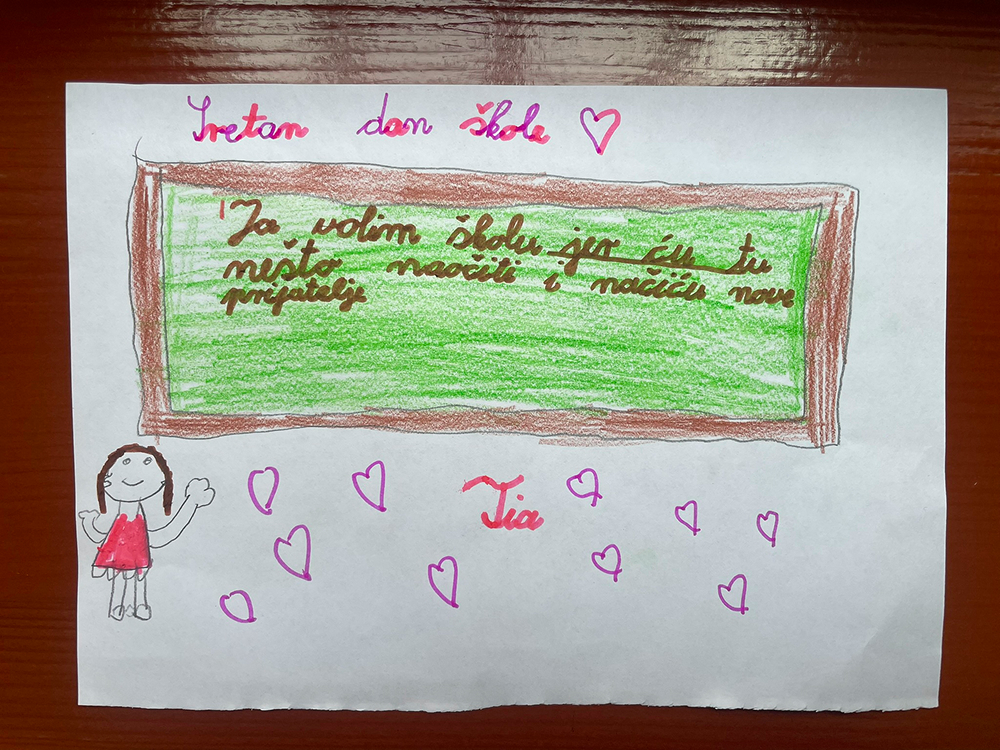 Sretan dan škole
Ja volim školu jer ću tu
nešto naočiti i načiću nove
prijatelje
Tia